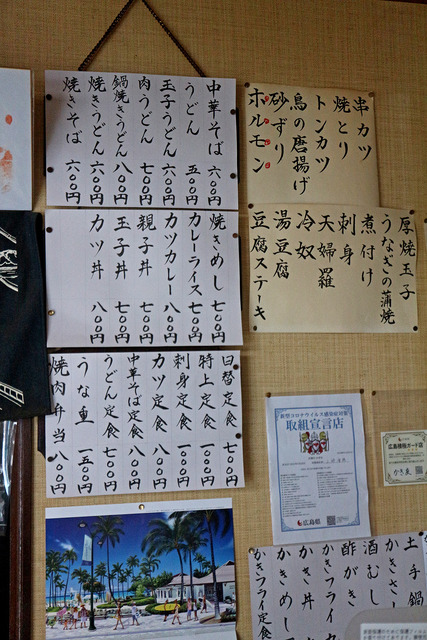 串カツ
焼とり
トンカツ
鳥の唐揚げ
砂ずり
ホルモン
中華そば 六〇〇円
うどん 五〇〇円
玉子うどん 六〇〇円
肉うどん 七〇〇円
鍋焼きうどん 八〇〇円
焼きうどん 六〇〇円
焼きそば 六〇〇円
厚焼玉子
うなぎの蒲焼
煮付け
刺身
天婦羅
冷奴
湯豆腐
豆腐ステーキ
焼きめし 七〇〇円
カレーライス 七〇〇円
カツカレー 八〇〇円
親子丼 七〇〇円
玉子丼 七〇〇円
カツ丼 八〇〇円
日替定食 七〇〇円
特上定食 一〇〇〇円
刺身定食 一〇〇〇円
カツ定食 八〇〇円
中華そば定食 八〇〇円
うどん定食 七〇〇円
うな重 一五〇〇円
焼肉弁当 八〇〇円
新型コロナウイルス感染症対策
取組宣言店
広島県
広島積極ガード店
土手鍋
かきさし
酒むし
酢がき
かきフライ
かき丼
かきめし
かきフライ定食